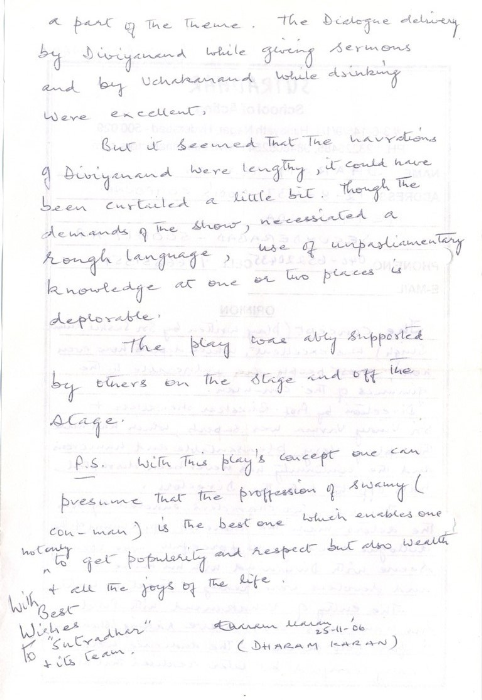 a part of the Theme. The Dialogue delivery
by Diviyanand while giving sermons
and by Uchakanand while drinking
were excellent.
But it seemed that the narrations
of Diviyanand were lengthy, it could have
been curtailed a little bit. Though the
demands of the show, necessiated a
rough language, use of unparliamentary
knowledge at one or two places is
deplorable.
The play was ably supported
by others on the stage and off the
stage.
P.S. With this play's concept one can
presume that the proffession of swamy (
con-man) is the best one which enables one
not only to get popularity and respect but also wealth
+ all the joys of the life.
With Best
Wishes
To "Sutradhar"
+ its team.
25-11-'06
(DHARAM KARAN)